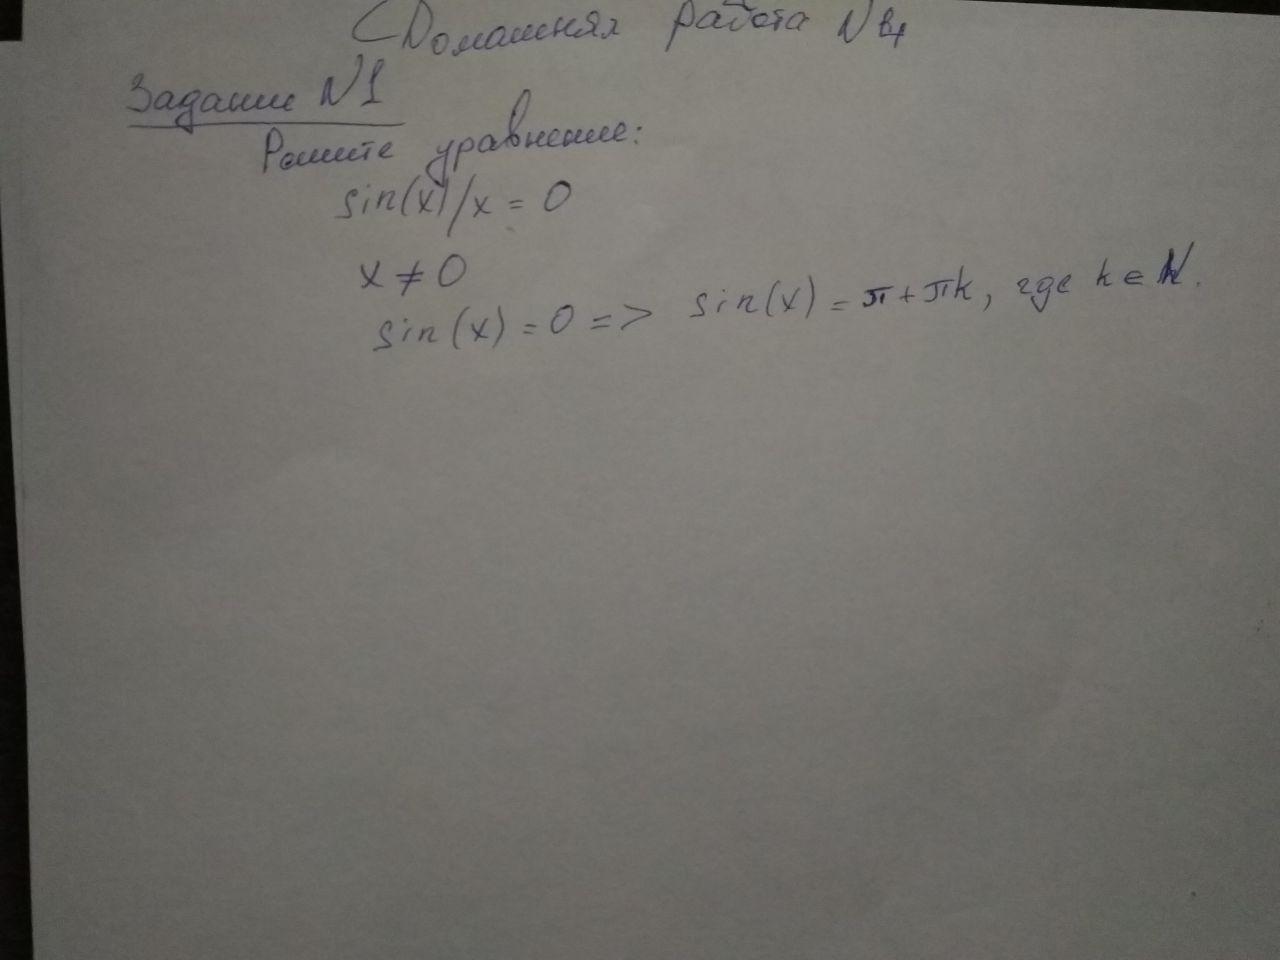 Домашняя работа №4
Задание №1
Решите уравнение:
sin(x)/x = 0
x ≠ 0
sin(x) = 0 => sin(x) = π + πk, где k ∈ N.